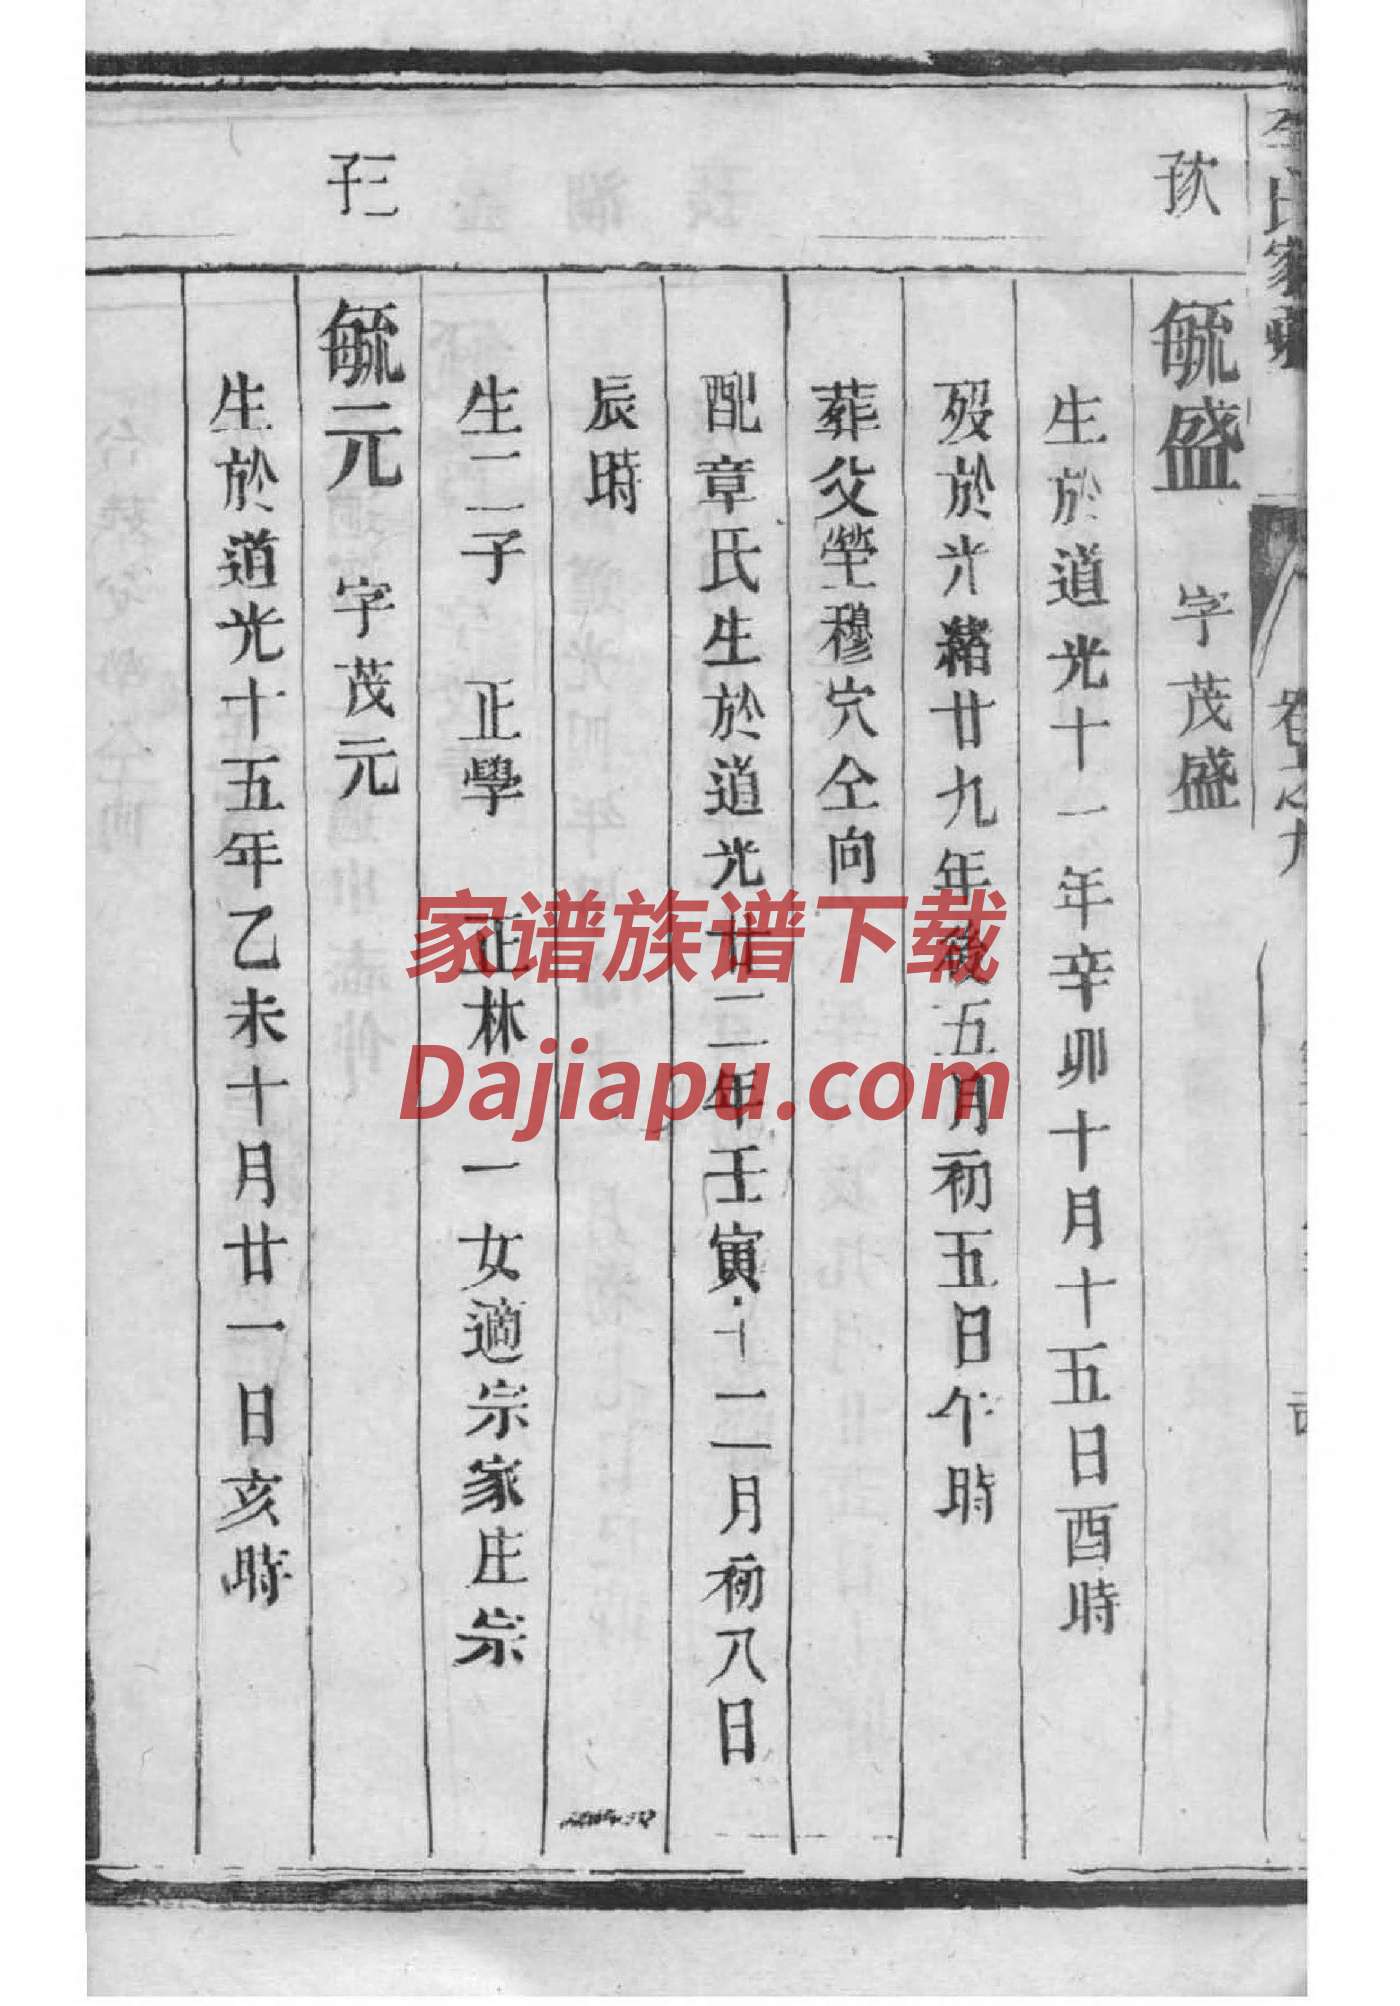 氏家乘
卷之九
子次
毓盛　字茂盛
生於道光十一年辛卯十月十五日酉時
歿於光緒廿九年後五月初五日午時
葬父塋穆穴仝向
配章氏生於道光廿二年壬寅十二月初八日
辰時
生二子　正學　正林　一女適宗家庄宗
子三
毓元　字茂元
生於道光十五年乙未十月廿一日亥時
家谱族谱下载
Dajiapu.com